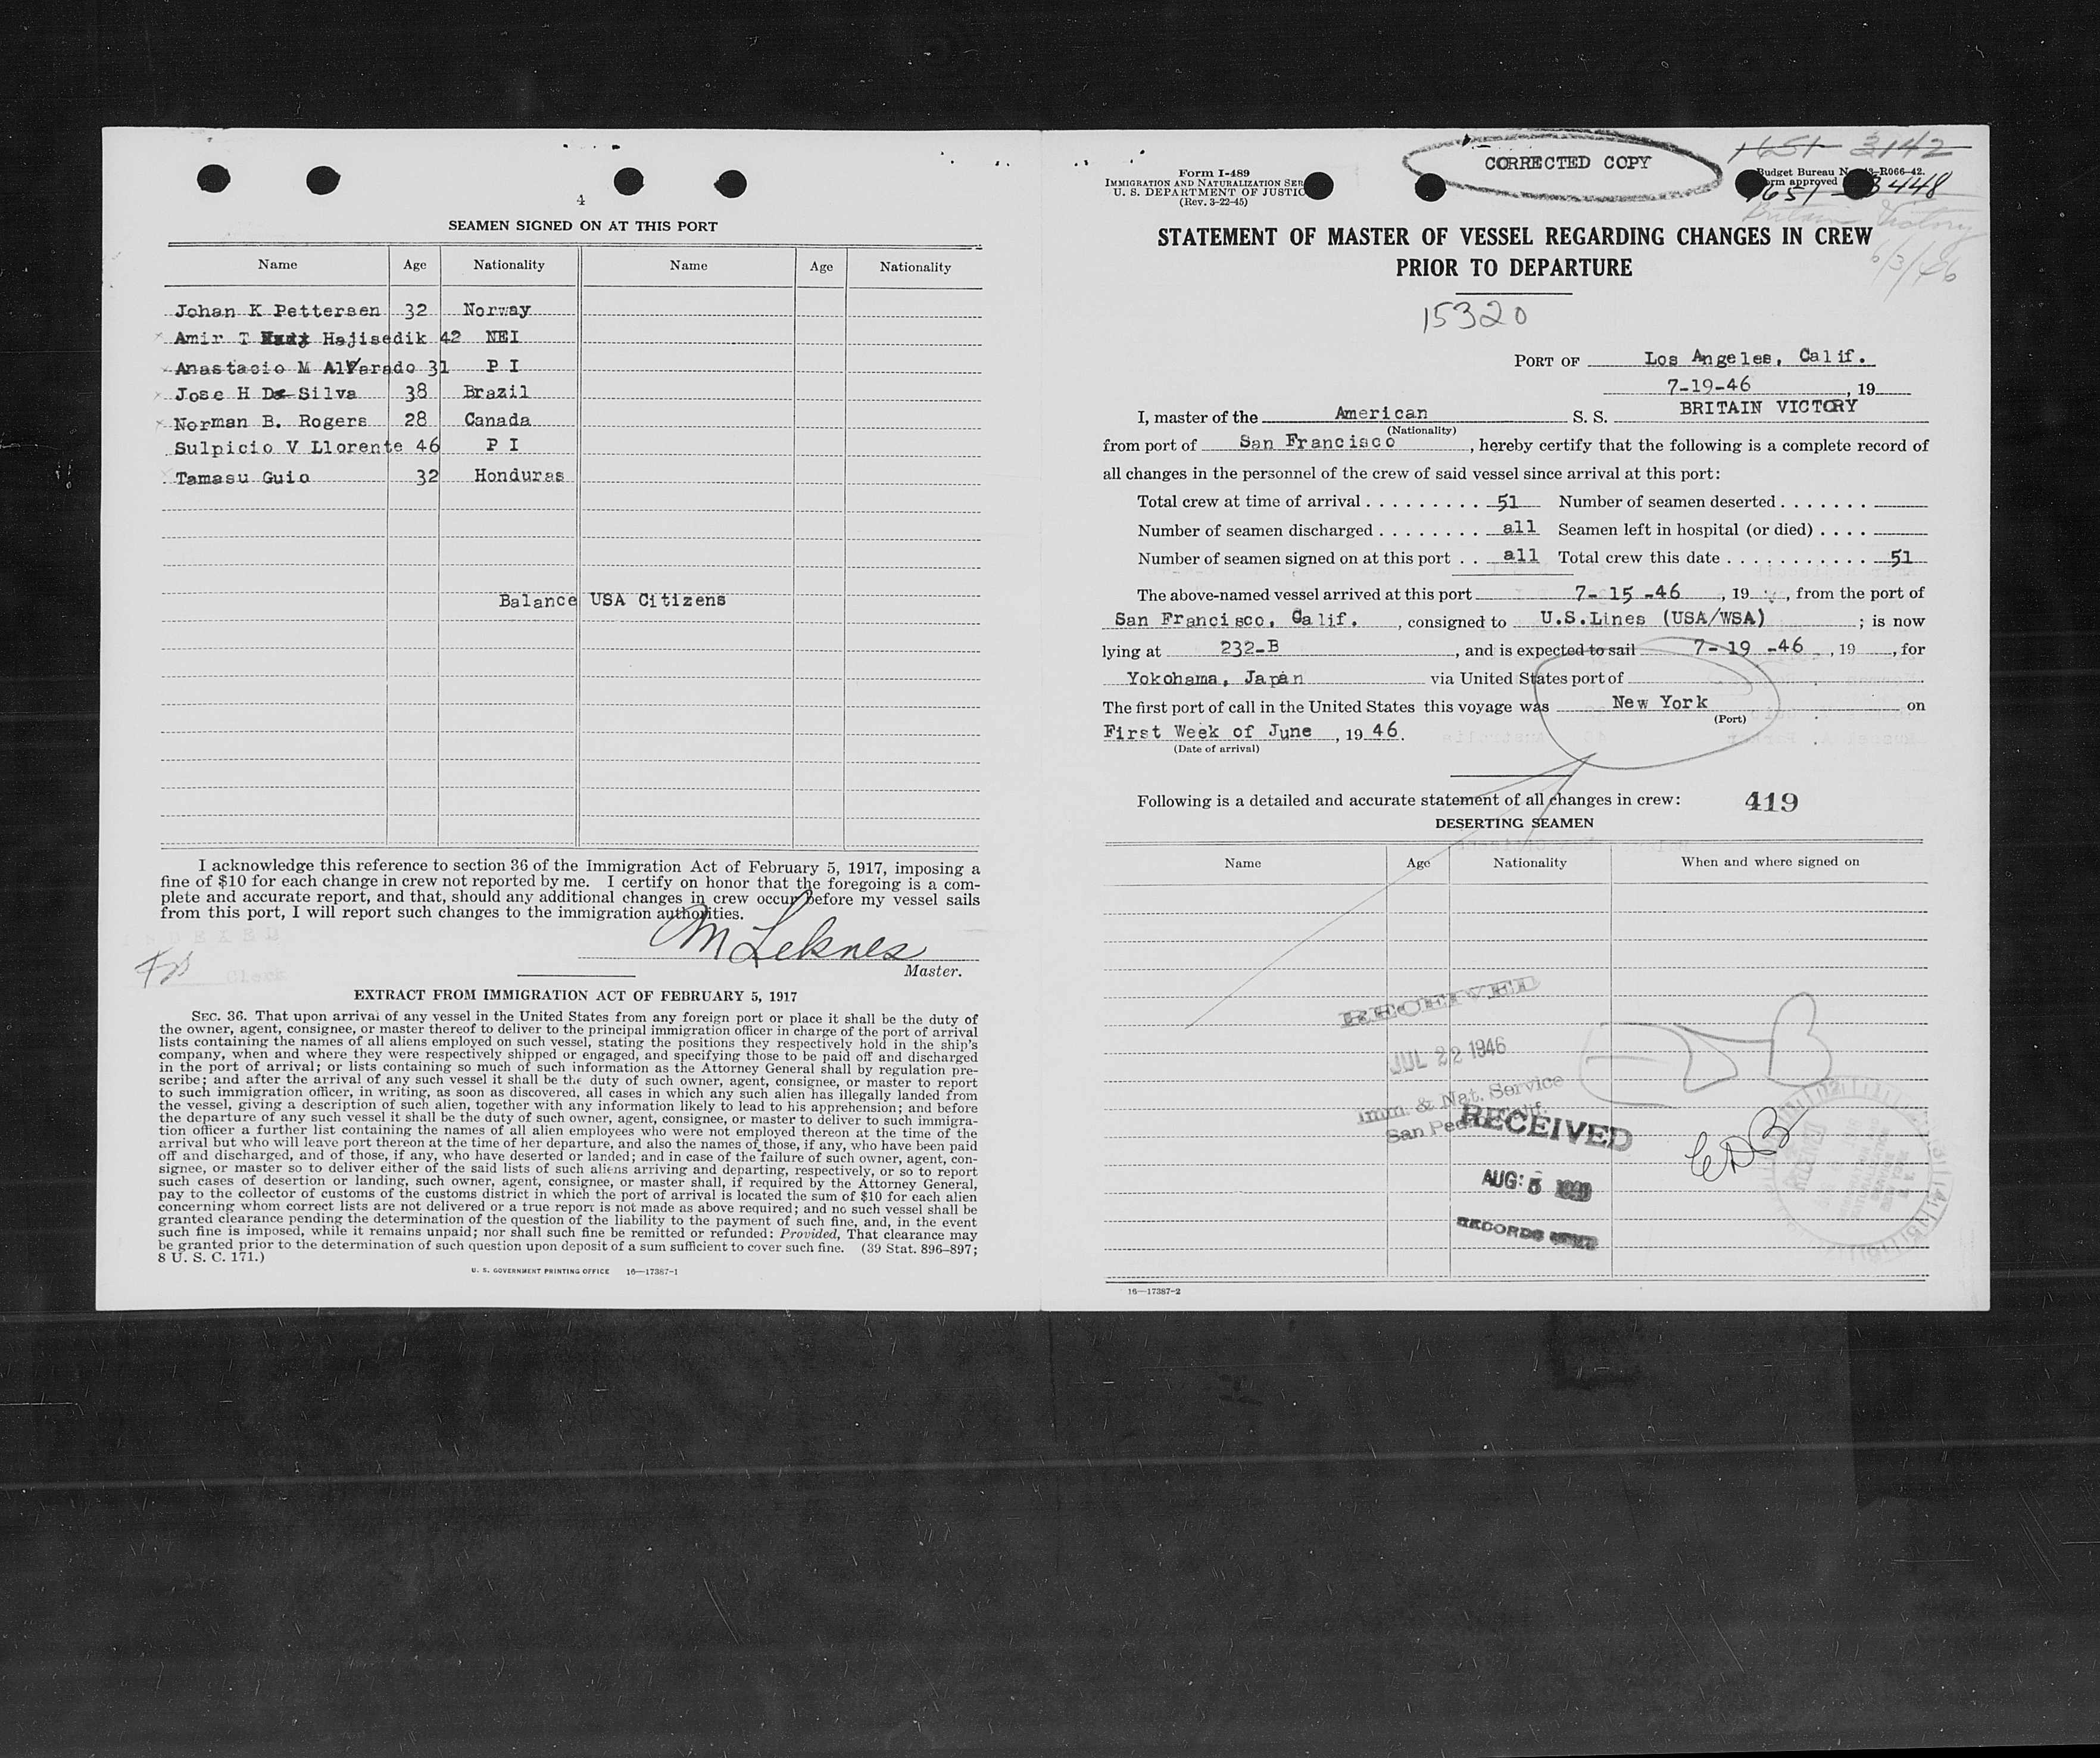 4
SEAMEN SIGNED ON AT THIS PORT
Name Age Nationality Name Age Nationality
Johan K Pettersen 32 Norway
Amir T Hajisedik 42 NEI
Anastacio M Alvarado 31 P I
Jose H De Silva 38 Brazil
Norman B. Rogers 28 Canada
Sulpicio V Llorente 46 P I
Tamasu Guio 32 Honduras
Balance USA Citizens
I acknowledge this reference to section 36 of the Immigration Act of February 5, 1917, imposing a
fine of $10 for each change in crew not reported by me. I certify on honor that the foregoing is a com-
plete and accurate report, and that, should any additional changes in crew occur before my vessel sails
from this port, I will report such changes to the immigration authorities.
M Leknes
Master.
INDEXED
Clerk
EXTRACT FROM IMMIGRATION ACT OF FEBRUARY 5, 1917
SEC. 36. That upon arrival of any vessel in the United States from any foreign port or place it shall be the duty of
the owner, agent, consignee, or master thereof to deliver to the principal immigration officer in charge of the port of arrival
lists containing the names of all aliens employed on such vessel, stating the positions they respectively hold in the ship's
company, when and where they were respectively shipped or engaged, and specifying those to be paid off and discharged
in the port of arrival; or lists containing so much of such information as the Attorney General shall by regulation pre-
scribe; and after the arrival of any such vessel it shall be the duty of such owner, agent, consignee, or master to report
to such immigration officer, in writing, as soon as discovered, all cases in which any such alien has illegally landed from
the vessel, giving a description of such alien, together with any information likely to lead to his apprehension; and before
the departure of any such vessel it shall be the duty of such owner, agent, consignee, or master to deliver to such immigra-
tion officer a further list containing the names of all alien employees who were not employed thereon at the time of the
arrival but who will leave port thereon at the time of her departure, and also the names of those, if any, who have been paid
off and discharged, and of those, if any, who have deserted or landed; and in case of the failure of such owner, agent, con-
signee, or master so to deliver either of the said lists of such aliens arriving and departing, respectively, or so to report
such cases of desertion or landing, such owner, agent, consignee, or master shall, if required by the Attorney General,
pay to the collector of customs of the customs district in which the port of arrival is located the sum of $10 for each alien
concerning whom correct lists are not delivered or a true report is not made as above required; and no such vessel shall be
granted clearance pending the determination of the question of the liability to the payment of such fine, and, in the event
such fine is imposed, while it remains unpaid; nor shall such fine be remitted or refunded: Provided, That clearance may
be granted prior to the determination of such question upon deposit of a sum sufficient to cover such fine. (39 Stat. 896–897;
8 U. S. C. 171.)
U. S. GOVERNMENT PRINTING OFFICE 16—17387-1
Form I-489
IMMIGRATION AND NATURALIZATION SER
U. S. DEPARTMENT OF JUSTIC
(Rev. 3-22-45)
CORRECTED COPY
1651- 3142
Budget Bureau N -R066-42.
rm approved
1651 - 3448
Britain Victory
6/3/46
STATEMENT OF MASTER OF VESSEL REGARDING CHANGES IN CREW
PRIOR TO DEPARTURE
15320
PORT OF Los Angeles, Calif.
7-19-46, 19
I, master of the American S. S. BRITAIN VICTORY
(Nationality)
from port of San Francisco, hereby certify that the following is a complete record of
all changes in the personnel of the crew of said vessel since arrival at this port:
Total crew at time of arrival . . . . . . . . . . 51 Number of seamen deserted . . . . . . .
Number of seamen discharged . . . . . . . . all Seamen left in hospital (or died) . . . .
Number of seamen signed on at this port . . all Total crew this date . . . . . . . . . . . . 51
The above-named vessel arrived at this port 7- 15 -46, 19 , from the port of
San Francisco, Calif. , consigned to U.S.Lines (USA/WSA) ; is now
lying at 232-B , and is expected to sail 7- 19 -46 , 19 , for
Yokohama, Japan via United States port of
The first port of call in the United States this voyage was New York on
(Port)
First Week of June , 19 46.
(Date of arrival)
Following is a detailed and accurate statement of all changes in crew: 419
DESERTING SEAMEN
Name Age Nationality When and where signed on
RECEIVED
JUL 22 1946
Imm. & Nat. Service
San Pedro, Calif.
RECEIVED
AUG 5
RECORDS
16—17387-2